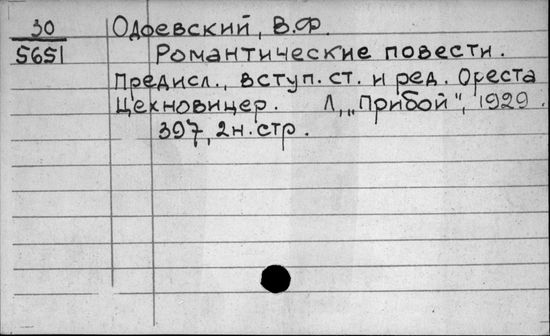 30 Одоевский, В.Ф.
5651 Романтические повести.
Предисл., вступ. ст. и ред. Ореста
Цехновицер. Л., „Прибой", 1929.
397, 2 н. стр.